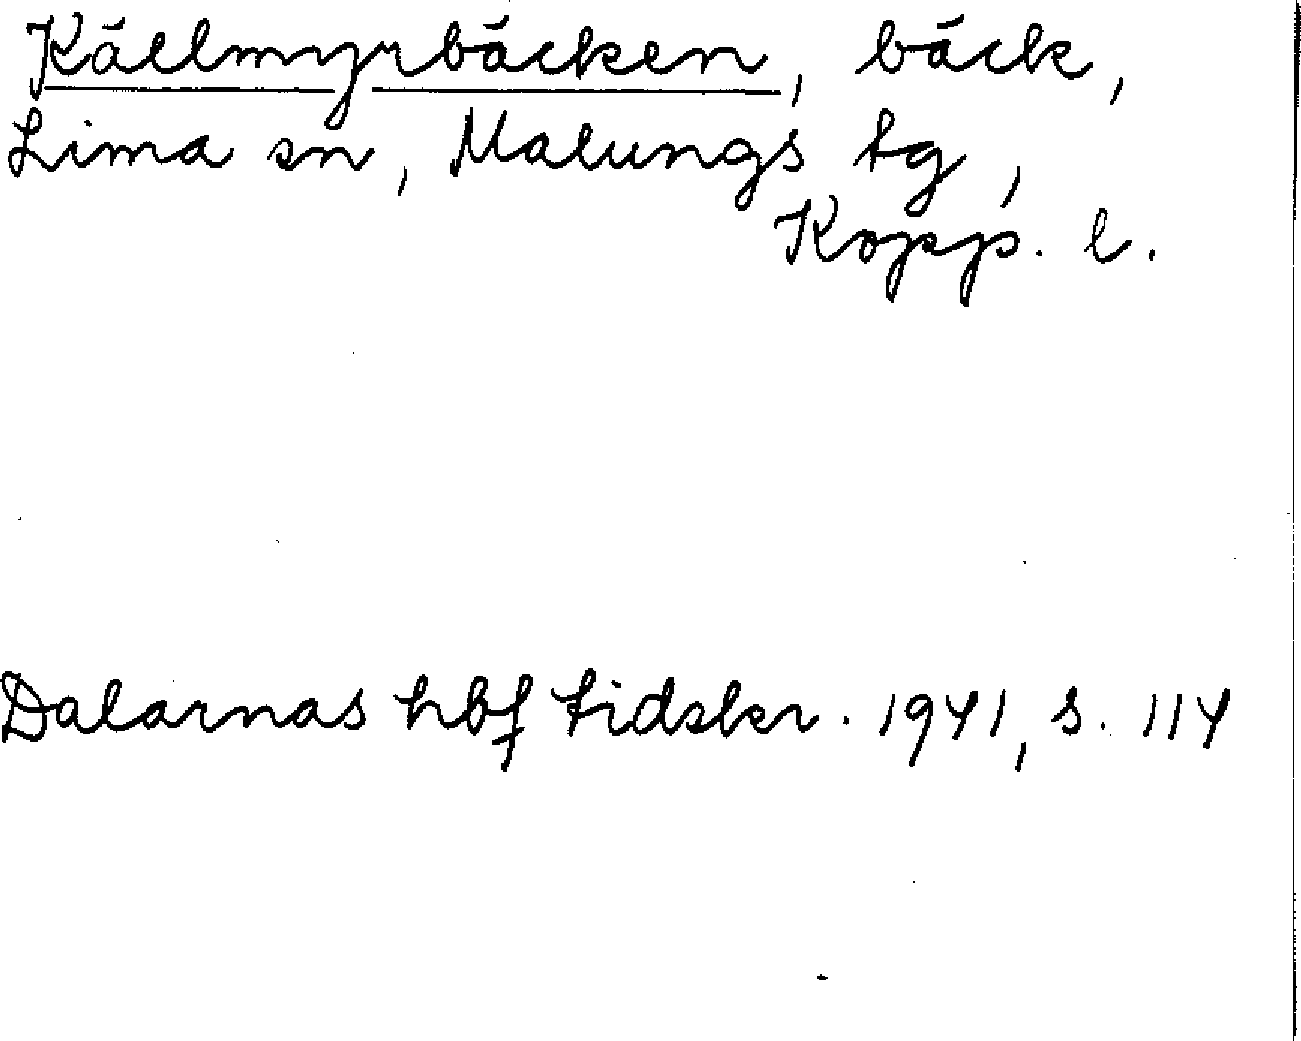 Källmyrbäcken, bäck,
Lima sn, Malungs tg,
Kopp. l.
Dalarnas hbf tidskr. 1941, s. 114